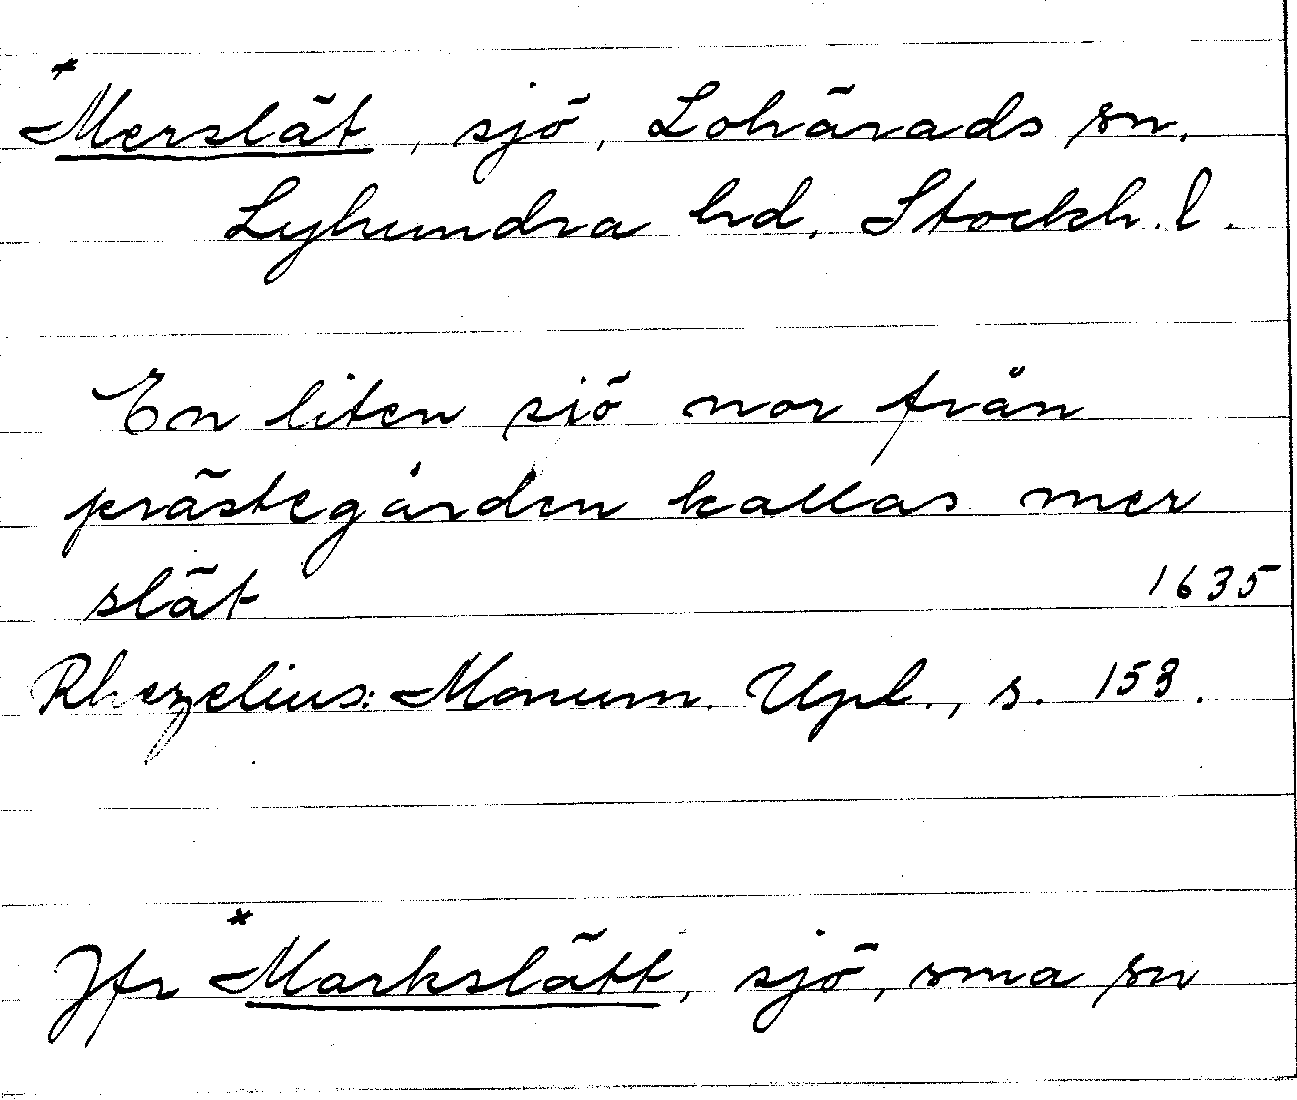 *Merslät, sjö, Lohärads sn.
Lyhundra hd, Stockh. l.
En liten sjö nor från
prästegården kallas mer
slät 1635
Rhezelius: Monum. Upl., s. 153.
Jfr *Markslätt, sjö, sma sn